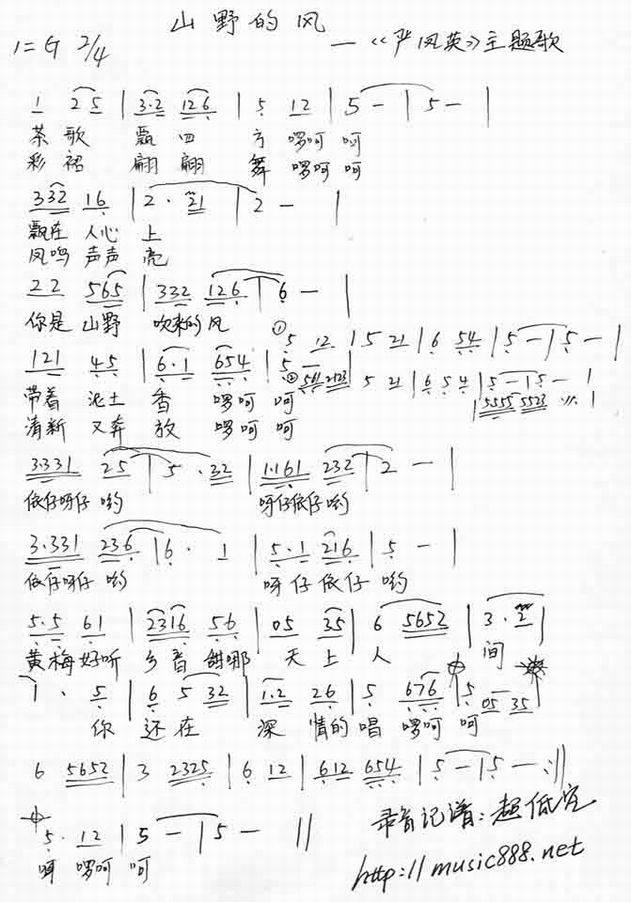 山野的风
1=G 2/4
—《严凤英》主题歌
1 25 | 3·2 126 | 5 12 | 5 - | 5 - |
茶歌 飘四方 啰呵呵
彩裙 翩翩舞 啰呵呵
332 16 | 2· 21 | 2 - |
飘在人心上
凤鸣声声亮
22 565 | 332 126 | 6 - |
你是山野 吹来的风
① 5 12 | 5 21 | 6 54 | 5 - | 5 - |
121 45 | 6·1 654 | 5 -
② 5 21 | 6 54 | 5 - | 5 - |
带着泥土香 啰呵呵
| 5555 5523 |
清新又奔放 啰呵呵
3·331 25 | 5· 32 | 1·161 232 | 2 - |
依仔呀仔哟 呀仔依仔哟
3·331 236 | 6· 1 | 5·1 216 | 5 - |
依仔呀仔哟 呀仔依仔哟
5·5 61 | 2316 56 | 05 35 | 6 5652 | 3·2 |
黄梅好听 乡音甜哪 天上人间
1· 5 | 6 5 32 | 1·2 26 | 5 676 | 5 05 35 |
你还在 深情的唱 啰呵呵
6 5652 | 3 2325 | 6 12 | 612 654 | 5 - | 5 - :||
5· 12 | 5 - | 5 - ||
呵 啰呵呵
录音记谱:超低空
http://music888.net